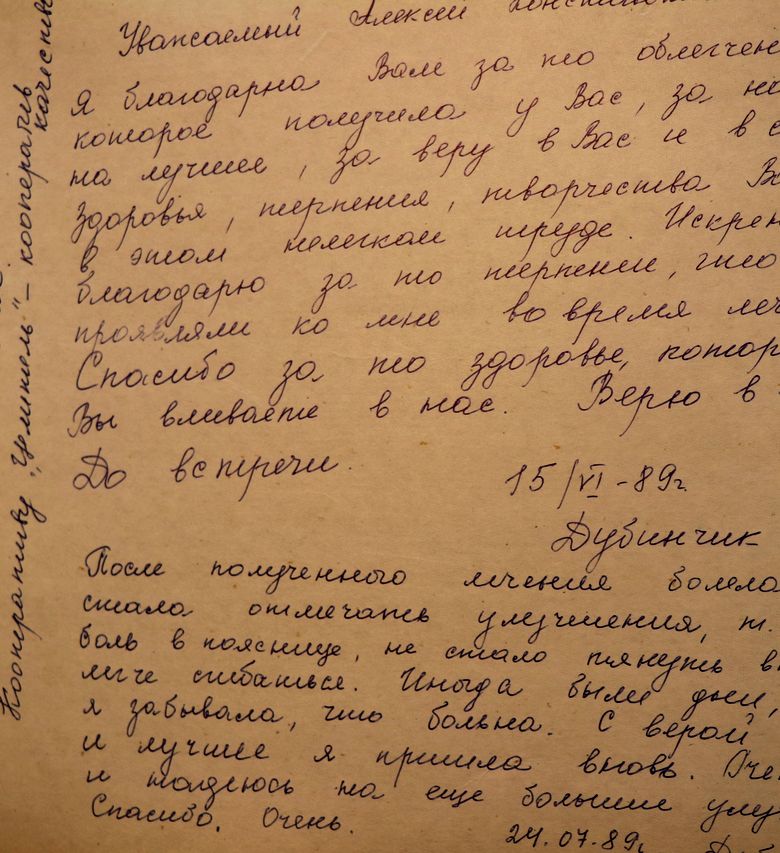 Уважаемый Алексей Констант
Я благодарна Вам за то облегчен
которое получила у Вас, за на
на лучшее, за веру в Вас и в с
Здоровья, терпения, творчества В
в этом нелегком труде. Искрен
благодарю за то терпение, что
проявляли ко мне во время леч
Спасибо за то здоровье, котор
Вы вливаете в нас. Верю в
До встречи.
15/VI-89г.
Дубинчик
После полученного лечения болела
стала отмечать улучшения, т.
боль в пояснице, не стало тянуть в
легче сгибаться. Иногда были дни,
я забывала, что больна. С верой
и лучшее я пришла вновь. Оче
и надеюсь на еще большие улу
Спасибо. Очень.
24.07.89г Дуб
Кооперативу „Целитель" – кооператив
качеств